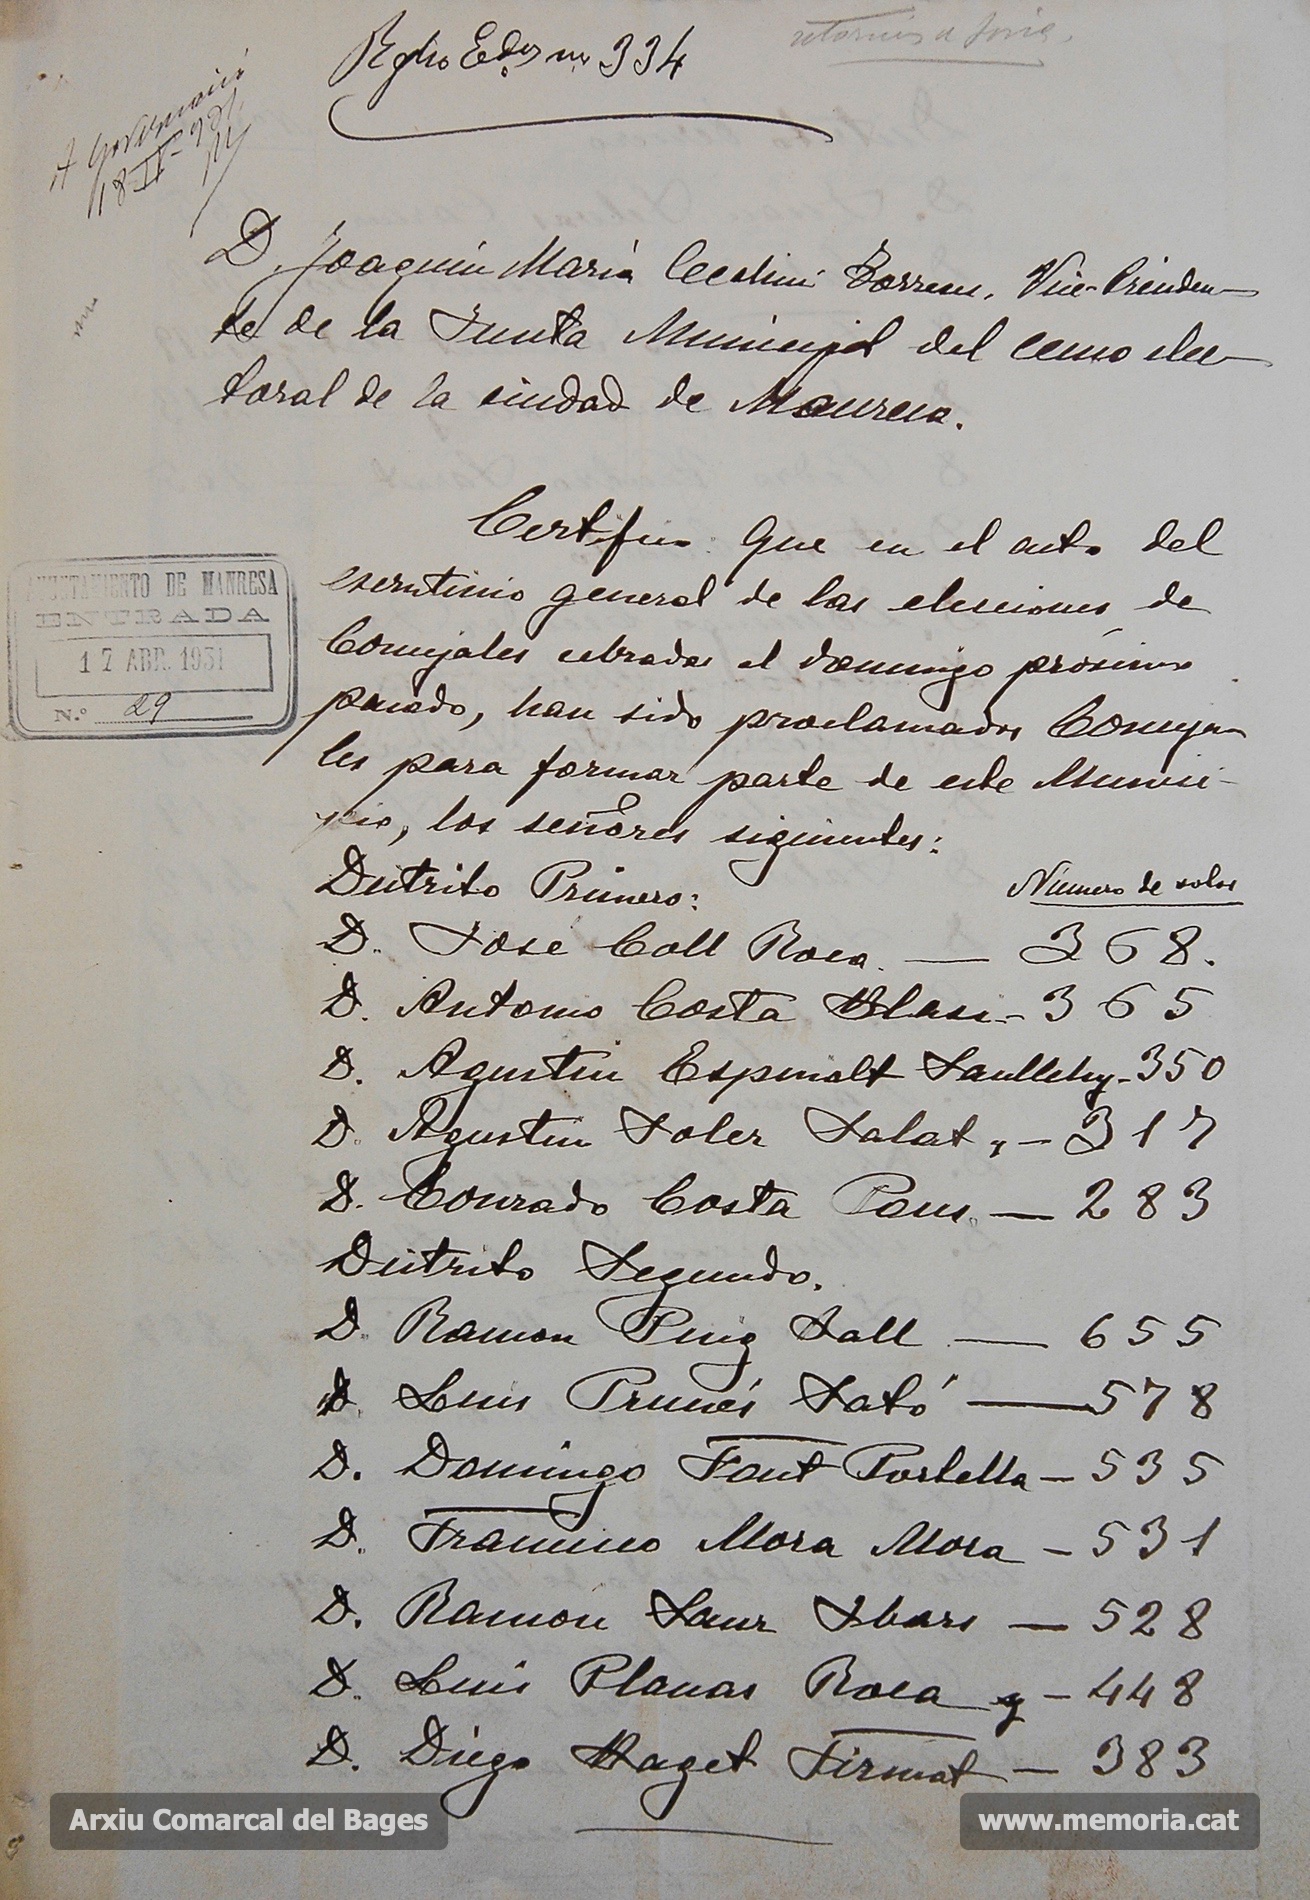 Rgtro Edos nº 334
A Governació
18-IV-931
D. Joaquín María Torrens, Vice-Presiden-
te de la Junta Municipal del censo elec-
toral de la ciudad de Manresa.
AYUNTAMIENTO DE MANRESA
ENTRADA
17 ABR. 1931
N.º 29
Certifico: Que en el acto del
escrutinio general de las elecciones de
Concejales celebradas el domingo próximo
pasado, han sido proclamados Conceja-
les para formar parte de este Munici-
pio, los señores siguientes:
Distrito Primero: Número de votos
D. José Coll Roca. — 368.
D. Antonio Costa Blasi - 365
D. Agustin Espinalt Saullehy - 350
D. Agustin Soler Salat y - 317
D. Conrado Costa Pons. — 283
Distrito Segundo.
D. Ramon Puig Sall — 655
D. Luis Prunés Sató — 578
D. Domingo Font Portella - 535
D. Francisco Mora Mora - 531
D. Ramon Sanz Ibars — 528
D. Luis Planas Roca y - 448
D. Diego Haget Firmat — 383
Arxiu Comarcal del Bages
www.memoria.cat